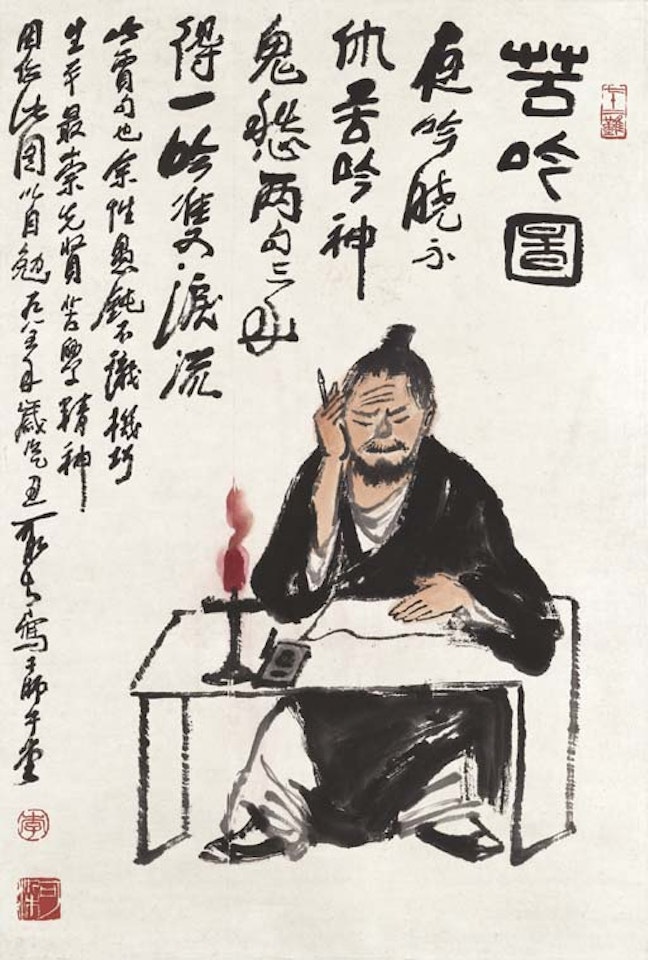 苦吟圖
夜吟曉不
休苦吟神
鬼愁两句三年
得一吟雙淚流
此賈句也余性愚鈍不識機巧
生平最崇先賢苦學精神
因作此圖以自勉 歲乙丑可染寫于師牛堂
李
可染